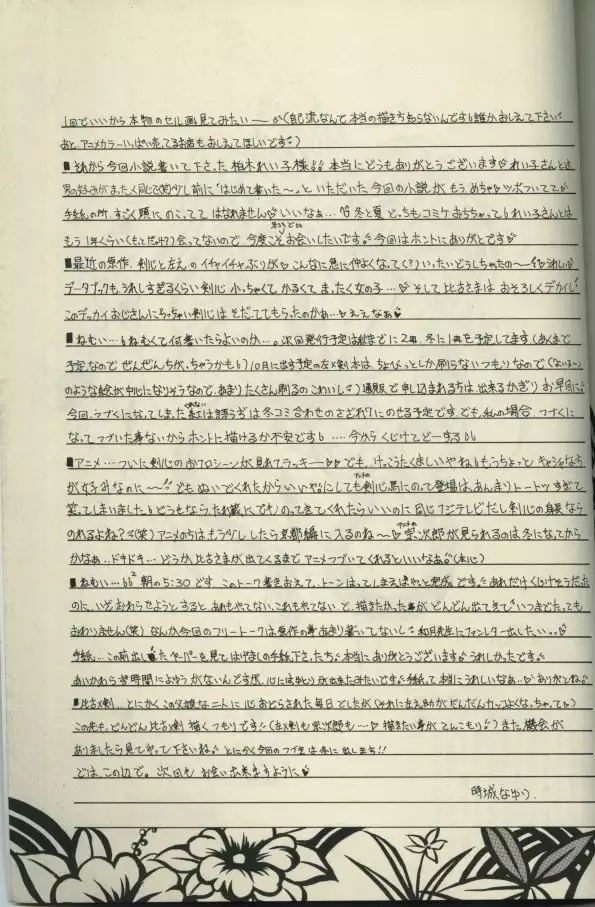 1回でいいから本物のセル画見てみたい――(自己流なんで本当の描き方知らないんです。誰か、おしえて下さい
あと、アニメカラーいっぱい売ってるお店もおしえてほしいです。)
■それから今回小説書いて下さった柏木れい子様 本当にどうもありがとうございます れい子さんとは
男の好みがまったく同じで(笑)少し前に"はじめて書いた〜。"といただいた今回の小説が もうめちゃツボついてて
手紙の所、すごく頭にのこってて はなれません いいなぁ…冬と夏どっちもコミケおちちゃって れい子さんとは
もう1年くらい(もっとだっけ?)会ってないので、今度こそお会いしたいです 今回はホントにありがとです
■最近の原作、剣心と左えのイチャイチャぶりが こんなに急に仲よくなって(?)いったいどうしちゃったの〜 うれしい
データブックも、うれしすぎるくらい剣心小っちゃくてかるくてまったく女の子… そして比古さまはおそろしくデカイし
このデッカイおじさんにちっちゃい剣心はそだててもらったのかぁ…ええなぁ
■ねむい…ねむくて何書いたらよいのか…。次回発行予定は秋までに2冊、冬に1冊を予定してます(あくまで
予定なので ぜんぜんちがっちゃうかも)10月に出す予定の左×剣本は、ちょびっとしか刷らないつもりなので
のような絵が中心になりそうなので、あまりたくさん刷るのこわいし)通販で申し込まれる方は出来るかぎりお早目に
今回、つづくになってしまった紅は揺らぎは冬コミ合わせのさざれ7にのせる予定です でも、私の場合、つづくに
なって つづいた事ないからホントに描けるか不安です ‥‥今からくじけてどーする
■アニメ…ついに剣心のおフロシーンが見れてラッキー でも、けっこうたくましいやね もうちょっとキャシャな方
が女子みなのに〜 でもぬいでくれたからいいや にしてもアニメの剣心馬にのって登場は、あんまりトートツすぎて
笑ってしまいました どうせならたれ蔵にでものってきてくれたらいいのに同じフジテレビだし剣心の身長なら
のれるよね?(笑)アニメの方はもう少ししたら京都編に入るのね〜 アニメの宗次郎が見られるのは冬になってから
かなぁ‥ドキドキ… どうか、比古さまが出てくるまでアニメつづいてくれるといいなぁ(本心)
■ねむい… 朝の5:30です。このトーク書きおえて、トーンはってしまえばやっと完成です。あれだけくじけそうだった
のに、いざおわらせようとすると、あれもやってない、これもやってないと、描きたかった事がどんどん出てきて いつまでたっても
おわりません(笑) なんか今回のフリートークは原作の事あまり書いてないし 和月先生にファンレター出したい‥
手紙…この前出したペーパーを見てはげましの手紙下さった方 本当にありがとうございます うれしかったです
あいかわらず時間によゆうがないんですが、心にはゆとりが出来たみたいです 手紙って本当にうれしいなぁ‥ ありがとね
■比古×剣…とにかくこの父娘な二人に心おどらされた毎日でしたが(それに左え助がだんだんカッコよくな、ちゃって)
この先も、どんどん比古×剣描くつもりです (左×剣も宗次郎も…描きたい事がてんこもり)また機会が
ありましたら見てやって下さいね。とにかく今回のつづきは冬に出します!!
では、この辺で。次回もお会い出来ますように
時城なゆり.